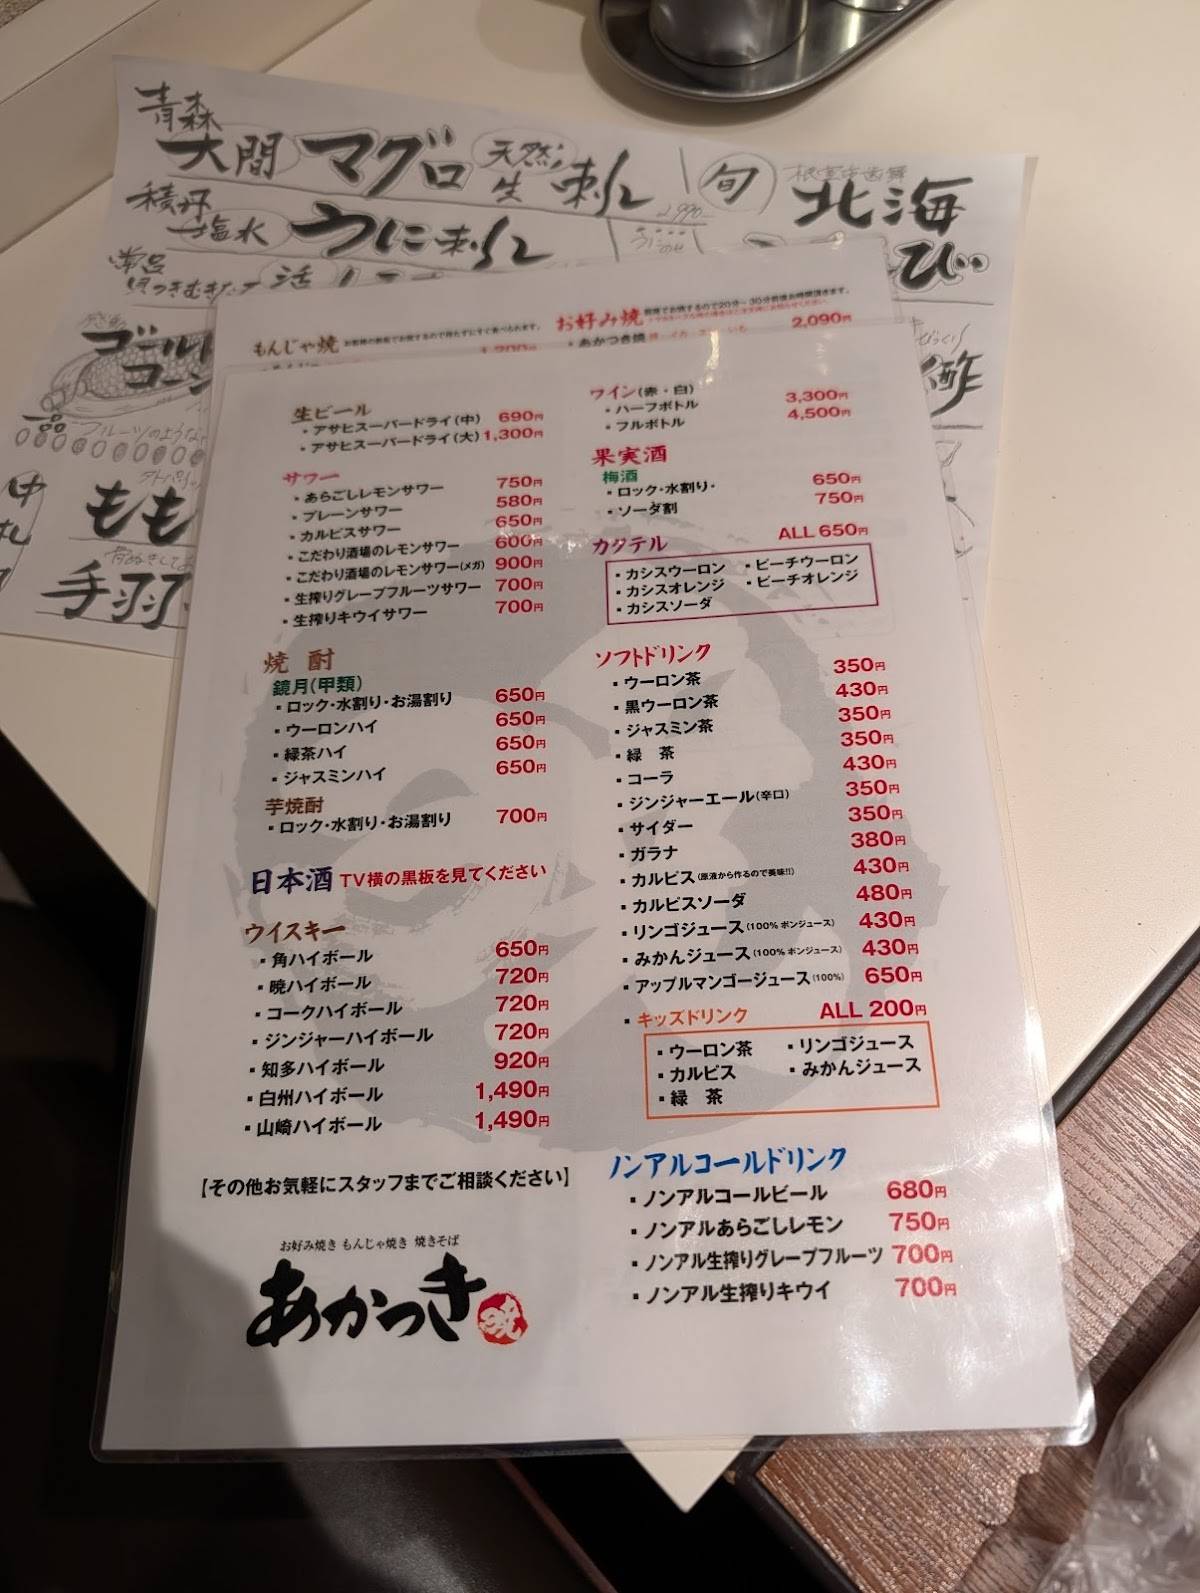 青森
大間 マグロ 天然 生 刺し
2,990
旬
北海
積丹
塩水 うに刺し
活
ゴールド
コーン
フルーツのような
もも
手羽
酢
もんじゃ焼
1,200円
お好み焼
・あかつき焼
2,090円
生ビール
・アサヒスーパードライ(中) 690円
・アサヒスーパードライ(大) 1,300円
サワー
・あらごしレモンサワー 750円
・プレーンサワー 580円
・カルピスサワー 650円
・こだわり酒場のレモンサワー 600円
・こだわり酒場のレモンサワー(メガ) 900円
・生搾りグレープフルーツサワー 700円
・生搾りキウイサワー 700円
焼酎
鏡月(甲類)
・ロック・水割り・お湯割り 650円
・ウーロンハイ 650円
・緑茶ハイ 650円
・ジャスミンハイ 650円
芋焼酎
・ロック・水割り・お湯割り 700円
日本酒 TV横の黒板を見てください
ウイスキー
・角ハイボール 650円
・暁ハイボール 720円
・コークハイボール 720円
・ジンジャーハイボール 720円
・知多ハイボール 920円
・白州ハイボール 1,490円
・山崎ハイボール 1,490円
【その他お気軽にスタッフまでご相談ください】
お好み焼き もんじゃ焼き 焼きそば
あかつき
ワイン(赤・白)
・ハーフボトル 3,300円
・フルボトル 4,500円
果実酒
梅酒
・ロック・水割り・ 650円
・ソーダ割 750円
カクテル ALL 650円
・カシスウーロン ・ピーチウーロン
・カシスオレンジ ・ピーチオレンジ
・カシスソーダ
ソフトドリンク
・ウーロン茶 350円
・黒ウーロン茶 430円
・ジャスミン茶 350円
・緑 茶 350円
・コーラ 430円
・ジンジャーエール(辛口) 350円
・サイダー 350円
・ガラナ 380円
・カルピス(原液から作るので美味!!) 430円
・カルピスソーダ 480円
・リンゴジュース(100% ポンジュース) 430円
・みかんジュース(100% ポンジュース) 430円
・アップルマンゴージュース(100%) 650円
・キッズドリンク ALL 200円
・ウーロン茶 ・リンゴジュース
・カルピス ・みかんジュース
・緑 茶
ノンアルコールドリンク
・ノンアルコールビール 680円
・ノンアルあらごしレモン 750円
・ノンアル生搾りグレープフルーツ 700円
・ノンアル生搾りキウイ 700円